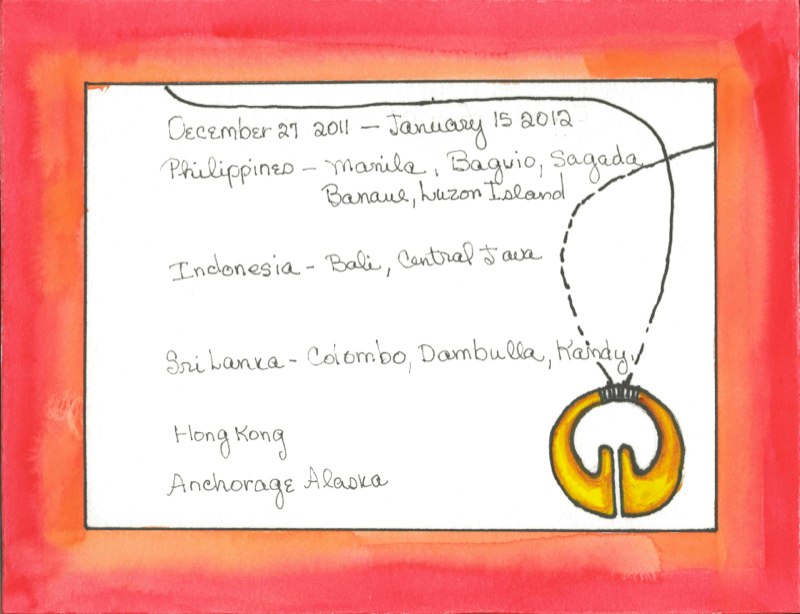 December 27 2011 – January 15 2012
Philippines – Manila, Baguio, Sagada
Banaue, Luzon Island
Indonesia – Bali, Central Java
Sri Lanka – Colombo, Dambulla, Kandy,
Hong Kong
Anchorage Alaska